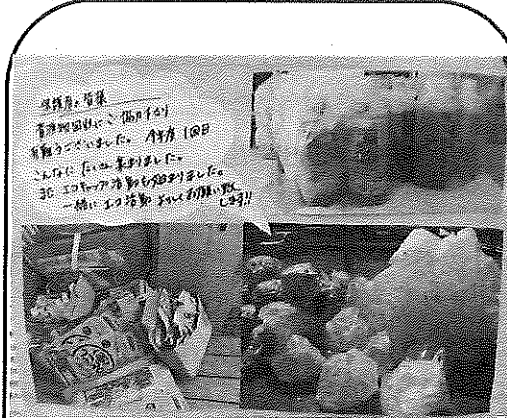 保護者の皆様
資源回収にご協力下さり
有難うございました。今年度1回目
こんなにたくさん集まりました。
3C エコキャップ活動も始まりました。
一緒にエコ活動よろしくお願い致
します!!